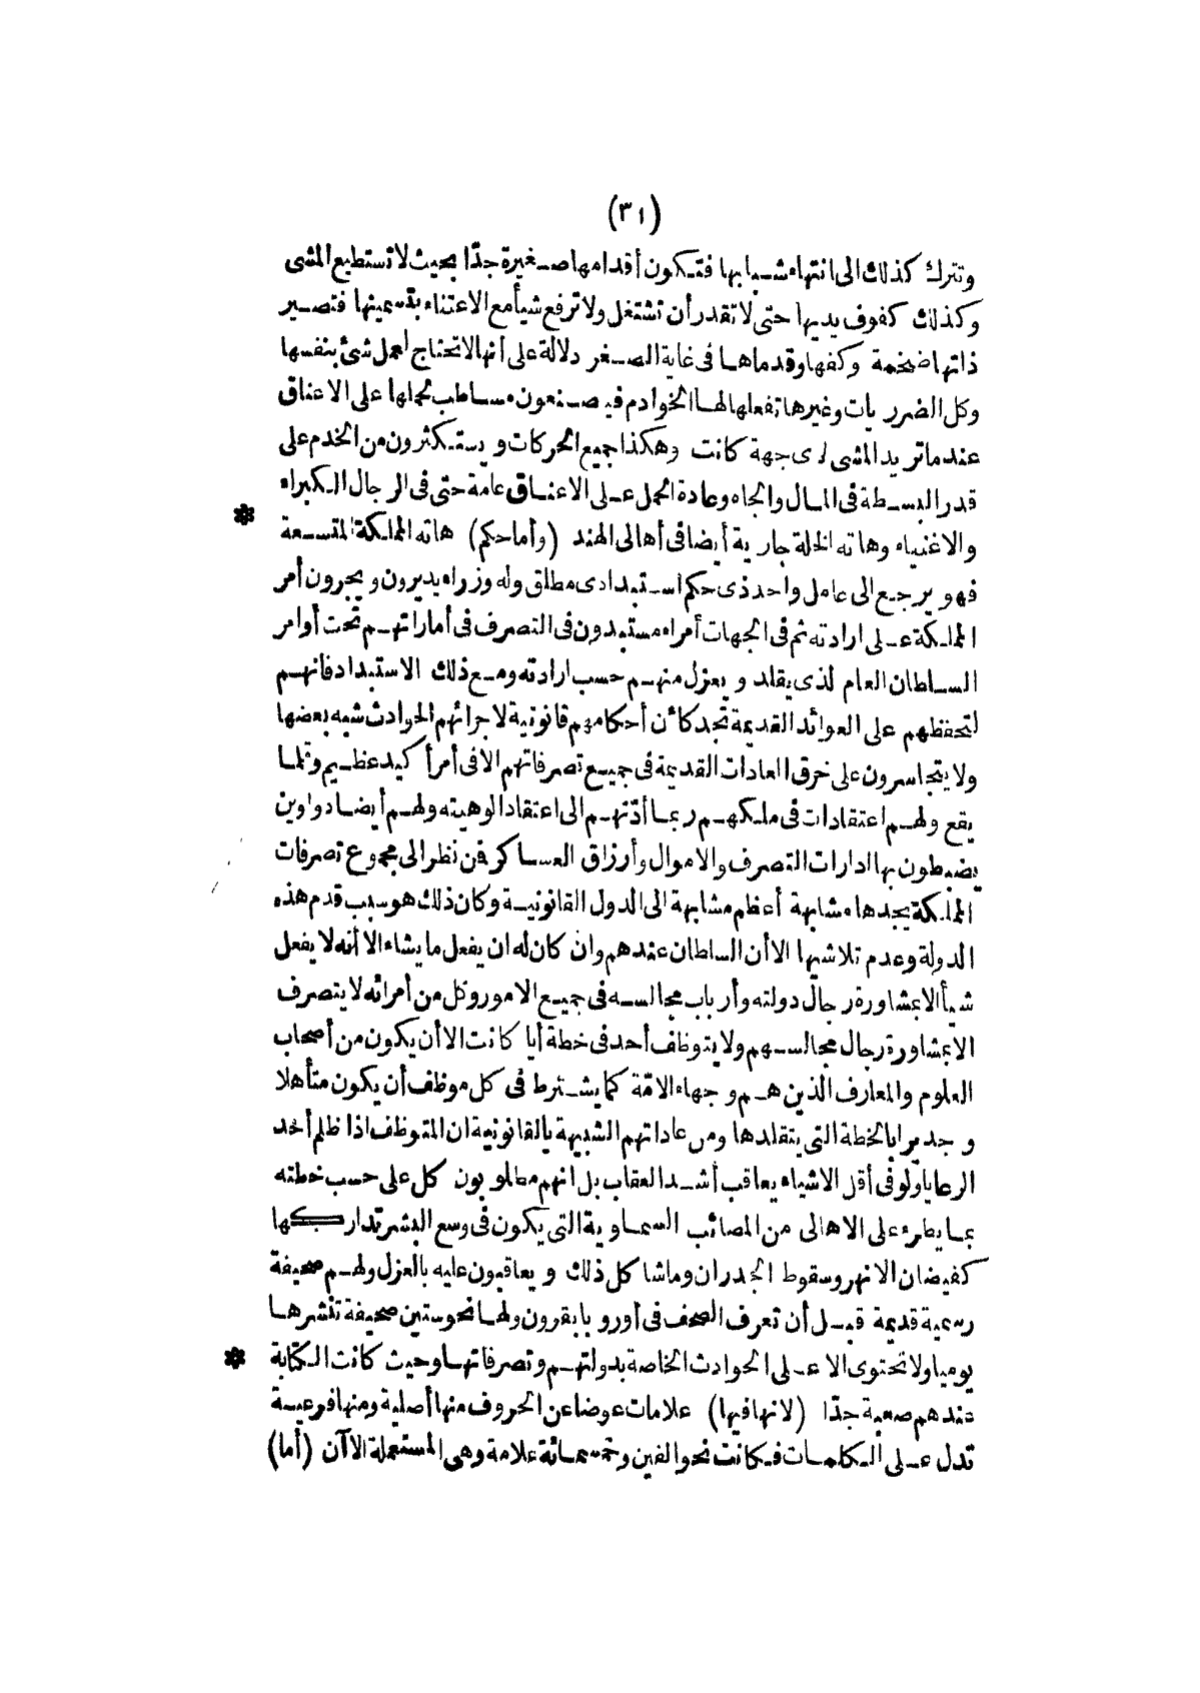 (٣١)
وتترك كذلك الى انتهاء شبابها فتكون أقدامها صغيرة جدّا بحيث لا تستطيع المشى
وكذلك كفوف يديها حتى لا تقدر أن تشتغل ولا ترفع شيأ مع الاعتناء بتسمينها فتصير
ذاتها ضخمة وكفها وقدماها فى غاية الصغر دلالة على أنها لا تحتاج لعمل شئ بنفسها
وكل الضروريات وغيرها تفعلها لها الخوادم فيصنعون مساطب لحملها على الاعناق
عند ما تريد المشى لاى جهة كانت وهكذا جميع الحركات ويستكثرون من الخدم على
قدر البسطة فى المال والجاه وعادة الحمل على الاعناق عامة حتى فى الرجال الكبراء
والاغنياء وهاته الخلة جارية أيضا فى أهالى الهند (وأما حكم) هاته المملكة المتسعة *
فهو يرجع الى عامل واحد ذى حكم استبدادى مطلق وله وزراء يديرون ويجرون أمر
المملكة على ارادته ثم فى الجهات أمراء مستبدون فى التصرف فى أماراتهم تحت أوامر
السلطان العام لذى يقلد ويعزل منهم حسب ارادته ومع ذلك الاستبداد فانهم
لتحفظهم على العوائد القديمة تجد كأن أحكامهم قانونية لاجرائهم الحوادث شبه بعضها
ولا يتجاسرون على خرق العادات القديمة فى جميع تصرفاتهم الا فى أمر أكيد عظيم وقلما
يقع ولهم اعتقادات فى ملكهم ربما أدّتهم الى اعتقاد الوهيته ولهم أيضا دواوين
يضبطون بها ادارات التصرف والاموال وأرزاق العساكر فمن نظر الى مجموع تصرفات
المملكة يجدها مشابهة أعظم مشابهة الى الدول القانونية وكان ذلك هو سبب قدم هذه
الدولة وعدم تلاشيها الا أن السلطان عندهم وان كان له ان يفعل ما يشاء الا أنه لا يفعل
شيأ الا بمشاورة رجال دولته وأرباب مجالسه فى جميع الامور وكل من أمرائه لا يتصرف
الا بمشاورة رجال مجالسهم ولا يتوظف أحد فى خطة أيا كانت الا أن يكون من أصحاب
العلوم والمعارف الذين هم وجهاء الامّة كما يشترط فى كل موظف أن يكون متأهلا
وجديرا بالخطة التى يتقلدها ومن عاداتهم الشبيهة بالقانونية ان المتوظف اذا ظلم أحد
الرعايا ولو فى أقل الاشياء يعاقب أشد العقاب بل انهم مطلوبون كل على حسب خطته
بما يطرء على الاهالى من المصائب السماوية التى يكون فى وسع البشر تداركها
كفيضان الانهر وسقوط الجدران وما شاكل ذلك ويعاقبون عليه بالعزل ولهم صحيفة
رسمية قديمة قبل أن تعرف الصحف فى أوروبا بقرون ولها نحو ستين صحيفة تنشرها
يوميا ولا تحتوى الا على الحوادث الخاصة بدولتهم وتصرفاتها وحيث كانت الكتابة *
عندهم صعبة جدّا (لانها فيها) علامات عوضا عن الحروف منها أصلية ومنها فرعية
تدل على الكلمات فكانت نحو الفين وخمسمائة علامة وهى المستعملة الاآن (أما)